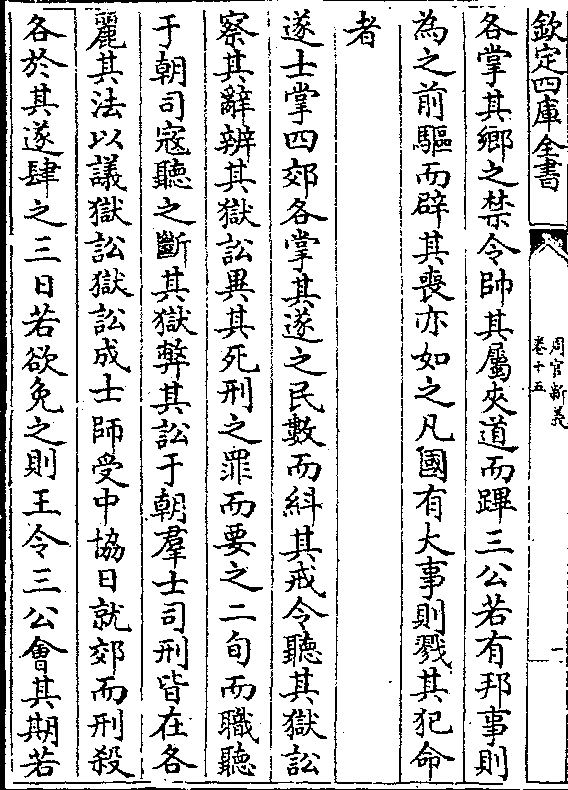 欽定四庫全書
周官新義
卷十五
一
各掌其鄉之禁令帥其屬夾道而蹕三公若有邦事則
為之前驅而辟其喪亦如之凡國有大事則戮其犯命
者
遂士掌四郊各掌其遂之民數而糾其戒令聽其獄訟
察其辭辨其獄訟異其死刑之罪而要之二旬而職聽
于朝司寇聽之斷其獄弊其訟于朝羣士司刑皆在各
麗其法以議獄訟獄訟成士師受中協日就郊而刑殺
各於其遂肆之三日若欲免之則王令三公會其期若